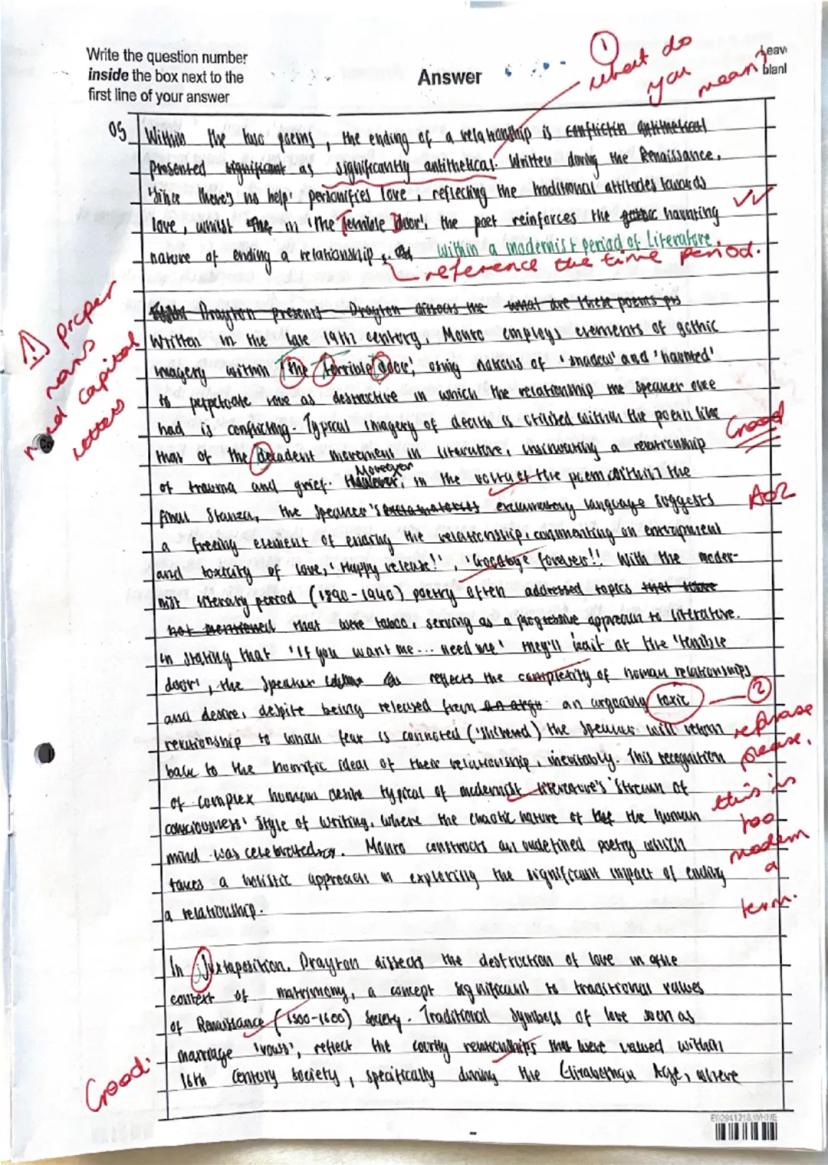 Write the question number
inside the box next to the
first line of your answer
Answer
Leave
blank
① what do
you
mean?
05
Within the two poems, the ending of a relationship is conflictin antithetical
presented significant as significantly antithetical. Written during the Renaissance,
'Since there's no help' personifies love, reflecting the traditional attitudes towards
love, whilst The in 'The Terrible Door', the poet reinforces the gothic haunting
nature of ending a relationship, within a modernist period of Literature.
reference the time period.
⚠ proper
nouns
need capital
letters
Drayton presents Drayton dissects the what are these poems
Written in the late 19th century, Monro employs elements of gothic
imagery within 'The terrible door', using notions of 'shadow' and 'haunted'
to perpetuate love as destructive in which the relationship the speaker once
had is conflicting. Typical imagery of death is utilised within the poem like
that of the decadent movement in literature, insinuating a relationship
of trauma and grief. However, Moreover, in the volta of the poem within the
final stanza, the speaker's exclamatory language suggests
a freeing element of ending the relationship, commenting on entrapment
and toxicity of love, 'Happy release!', 'Goodbye forever!!' With the moder-
nist literary period (1890-1940) poetry often addressed topics that were
not mentioned that were taboo, serving as a progressive approach to literature.
In stating that 'If you want me... need me' they'll wait at the 'terrible
door', the speaker reflects the complexity of human relationships
and desire, despite being released from an arguably toxic
relationship to which fear is connoted ('shivered') the speaker will return
back to the horrific ideal of their relationship, inevitably. This recognition
of complex human desire typical of modernist literature's 'stream of
consciousness' style of writing, where the chaotic nature of the human
mind was celebrated. Monro constructs an undefined poetry which
takes a holistic approach in exploring the significant impact of ending
a relationship.
Good
AO2
② rephrase
please,
this is
too
modern
a
term.
In juxtaposition, Drayton dissects the destruction of love in the
context of matrimony, a concept significant to traditional values
of Renaissance (1500-1600) society. Traditional symbols of love such as
marriage 'vows', reflect the courtly relationships that were valued within
16th century society, specifically during the Elizabethan Age, where
Good.